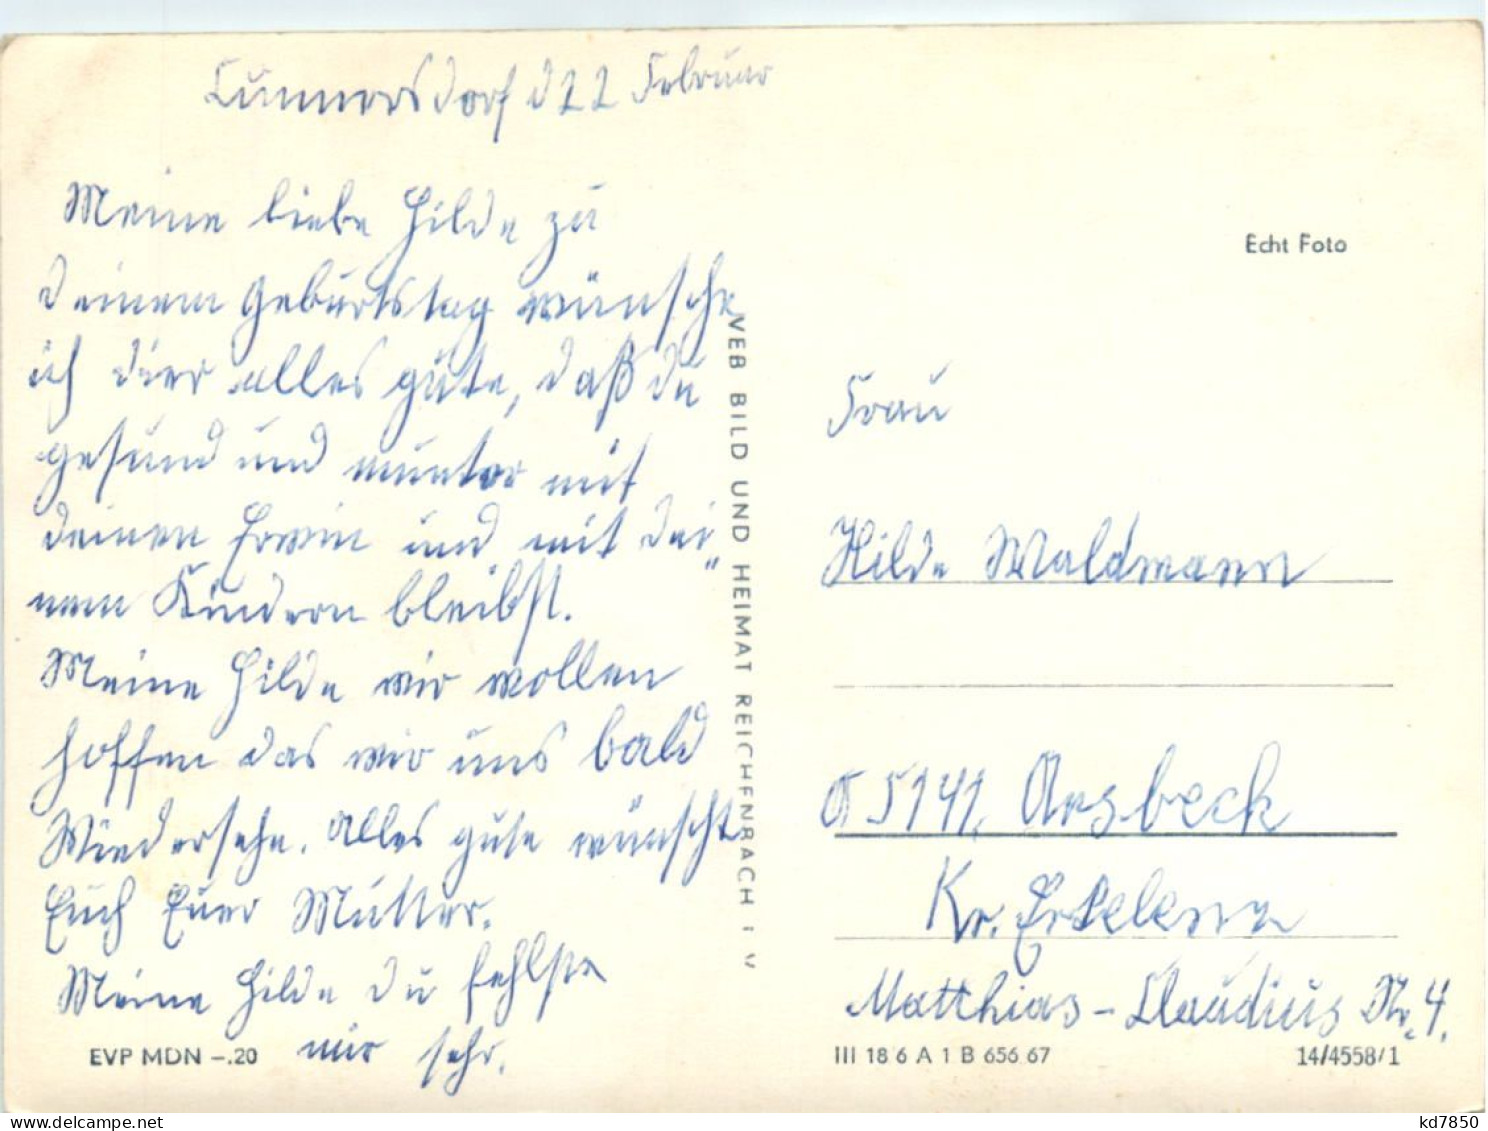 Cunnersdorf d 22 Februar
Meine liebe Hilde zu
deinem Geburtstag wünsche
ich dier alles gute, daß du
gesund und munter mit
deinen Erwin und mit dei„
nen Kindern bleibst.
Meine Hilde wir wollen
hoffen das wir uns bald
Wiedersehn. Alles gute wünscht
Euch Euer Mutter.
Meine Hilde du fehlste
mir sehr.
EVP MDN –.20
VEB BILD UND HEIMAT REICHENBACH I V
Echt Foto
Frau
Hilde Waldmann
5141. Arsbeck
Kr. Erkelenz
Matthias - Claudius Nr. 4.
III 18 6 A 1 B 656 67
14/4558/1
delcampe.net
kd7850